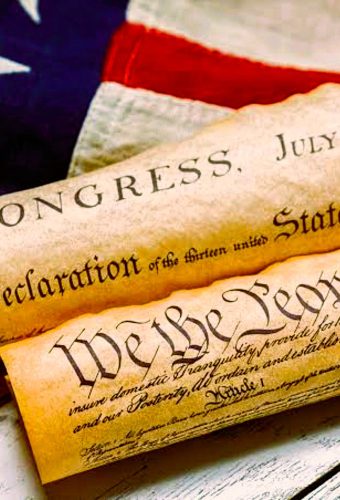 ONGRESS, JULY
eclaration of the thirteen united State
We the Peop
insure domestic Tranquility, provide for
and our Posterity, do ordain and establis
Article I